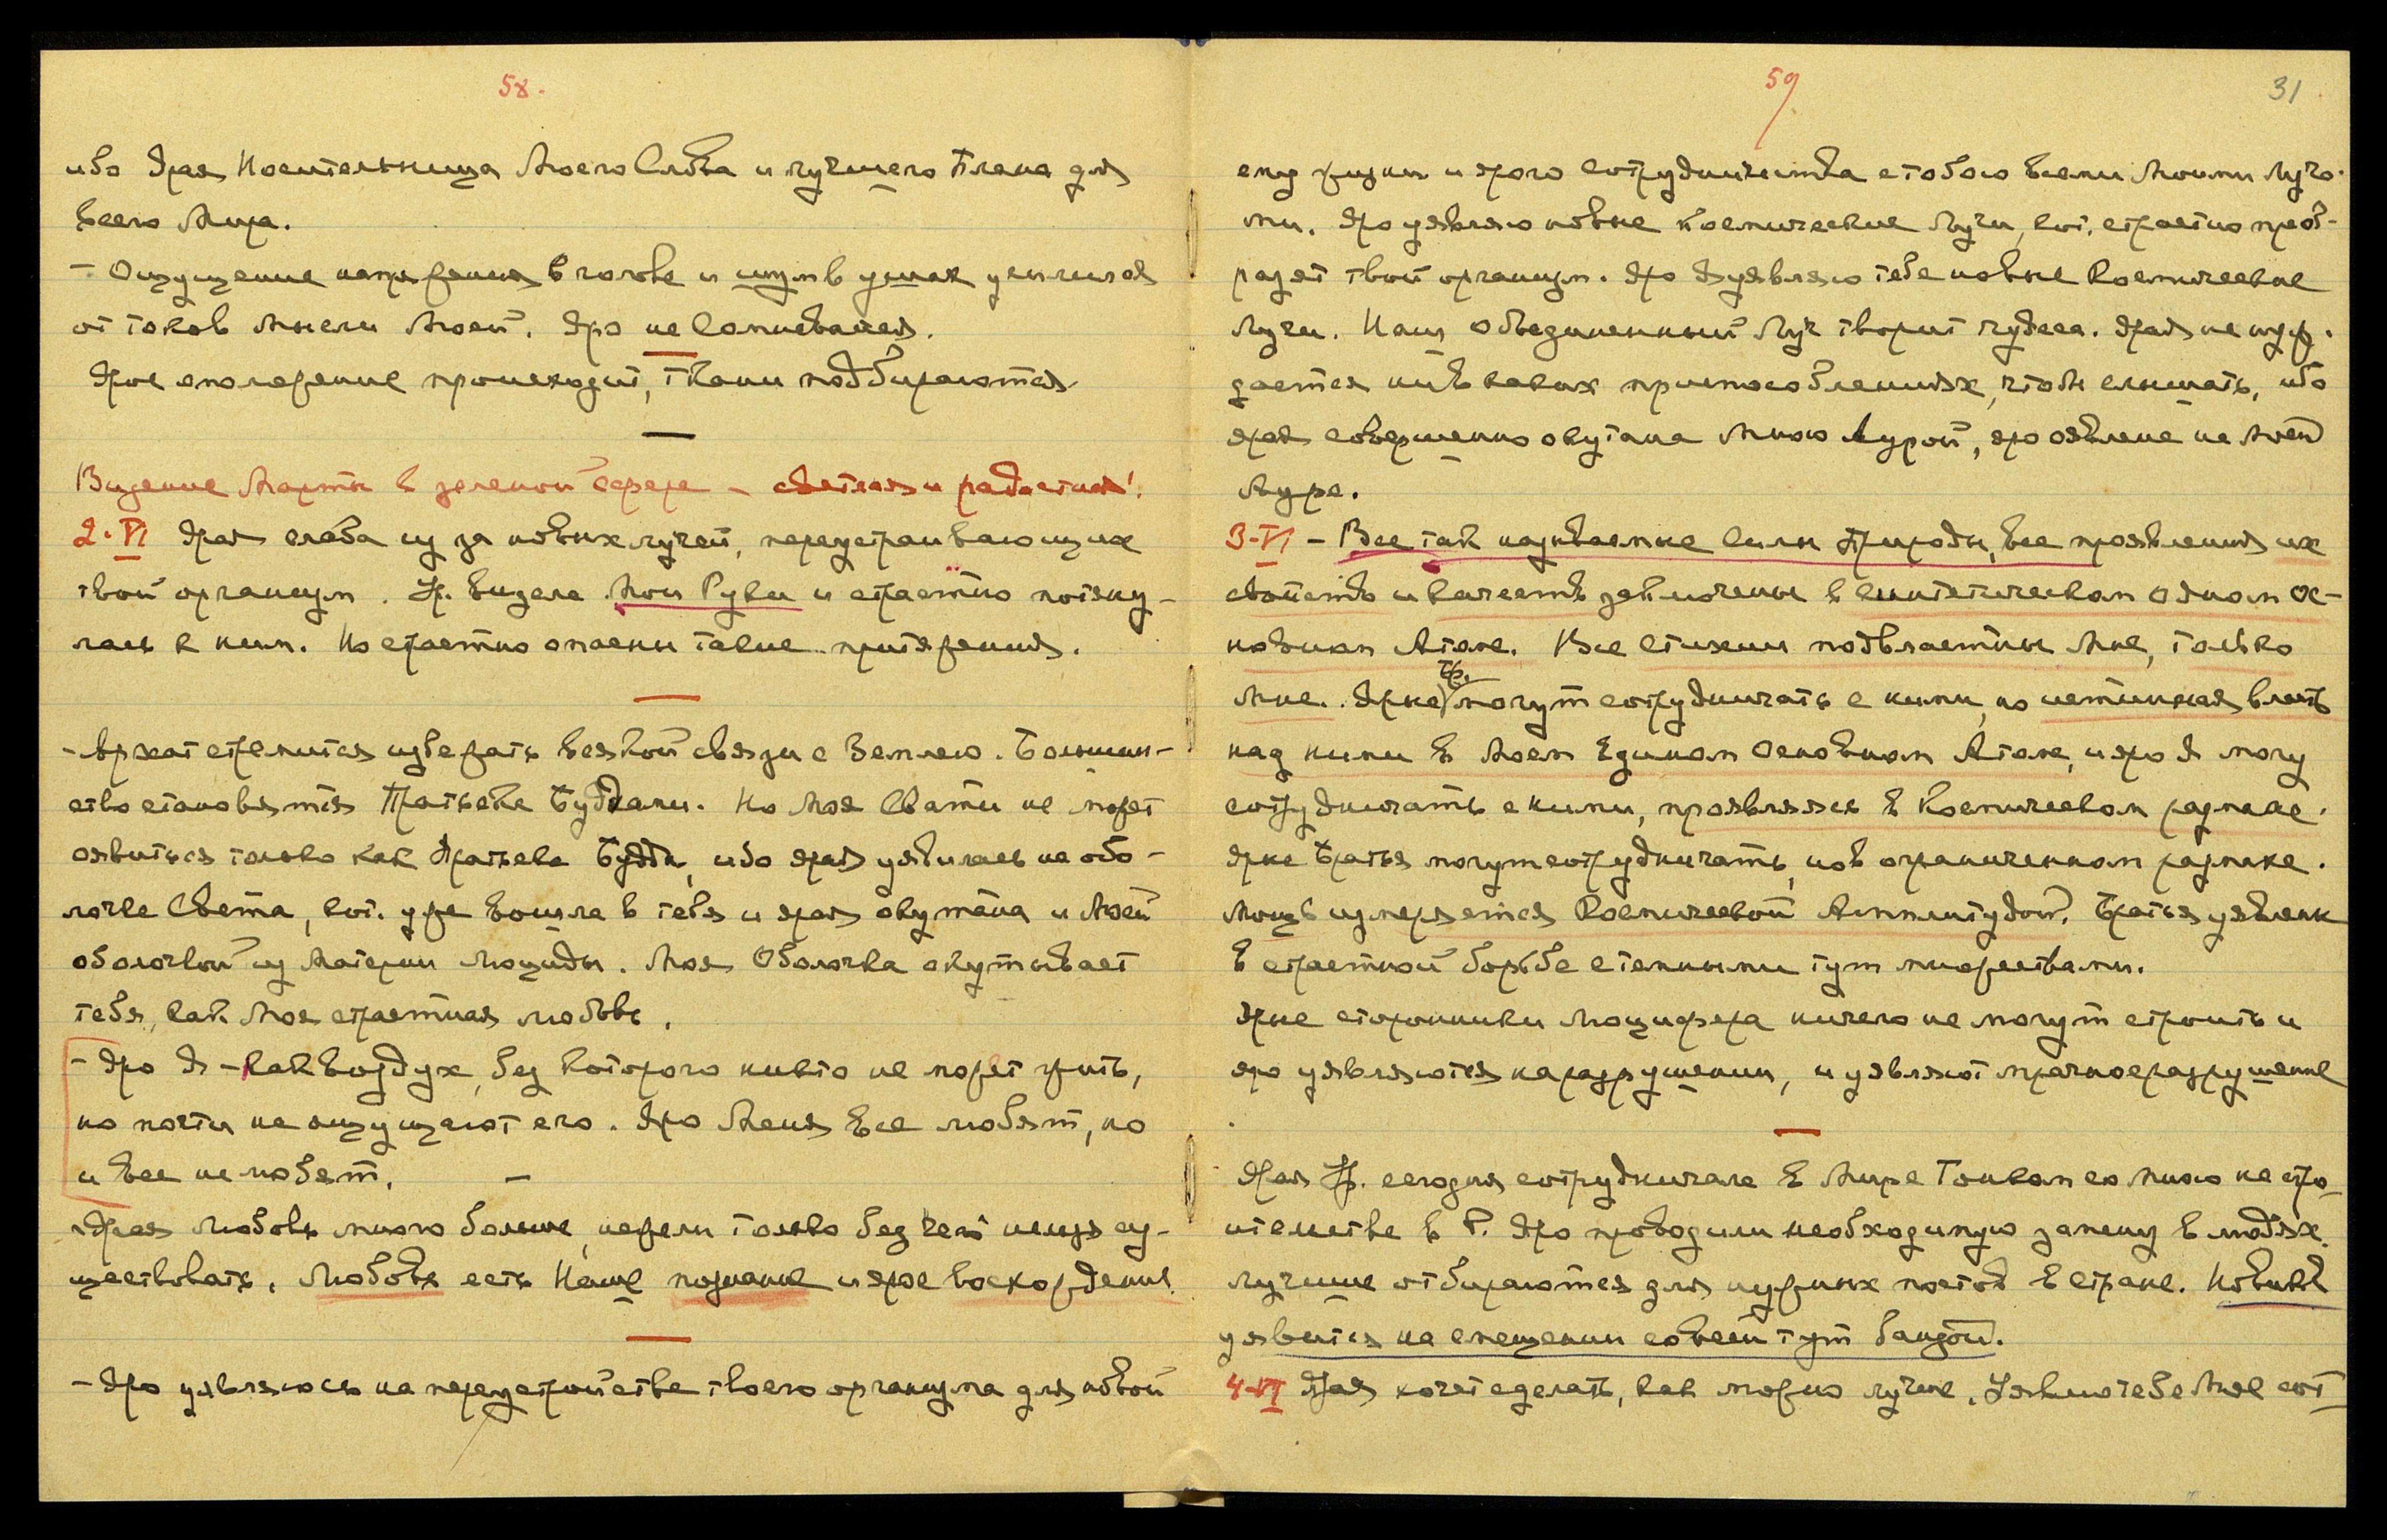 58.
ибо Ярая Носительница Моего Слова и лучшего Плана для
всего Мира.
– Ощущение напряжения в голове и шум в ушах усилился
от токов Мысли Моей. Яро не Сомневайся.
Ярое омоложение происходит, ткани подбираются
—
Видение Марты в зеленой сфере – светлая и радостная!
2-VI Ярая слаба из за новых лучей, перестраивающих
твой организм. Ур. видела Мои Руки и страстно потяну-
лась к ним. Но страстно опасны такие притяжения.
—
– Архат стремится избежать всякой связи с Землею. Большин-
ство становятся Пратьека Буддами. Но Моя Свати не может
оявиться только как Пратьека Будда, ибо ярая уявилась на обо-
лочке Света, кот. уже вошла в тебя и ярая окутана и Моей
оболочкой из Материи Люциды. Моя Оболочка окутывает
тебя, как Моя страстная любовь.
– Яро Я – как воздух, без которого никто не может жить,
но почти не ощущают его. Яро Меня Все любят, но
и все не любят. –
Ярая Любовь много больше, нежели только без чего нельзя су-
ществовать. Любовь есть Наше познание и ярое восхождение.
—
– Яро уявляюсь на переустройстве твоего организма для новой
59 31
ему жизни и ярого сотрудничества с тобою всеми Моими Луча-
ми. Яро уявляю новые Космические Лучи, кот. страстно преоб-
разят твой организм. Яро Я уявляю тебе новые Космические
Лучи. Наш Объединенный Луч творит чудеса. Ярая не нуж-
дается ни в каких приспособлениях, чтобы слышать, ибо
ярая совершенно окутана Мною Аурой, яро оявлена на Моей
Ауре.
3-VI – Все так называемые силы Природы, все проявления их
свойств и качеств заключены в синтетическом одном Ос-
новном Атоме. Все стихии подвластны Мне, только
Мне. Яркие Бр. могут сотрудничать с ними, но истинная власть
над ними в Моем Едином Основном Атоме, и яро Я могу
сотрудничать с ними, проявляясь в Космическом размахе.
Ярые Братья могут сотрудничать, но в ограниченном размахе.
Мощь измеряется Космической Амплитудой. Братья уявлены
в страстной борьбе с темными тут множествами.
Ярые сторонники Люцифера ничего не могут строить и
яро уявляются на разрушении, и уявляют мрачное разрушение
—
Ярая Ур. сегодня сотрудничала в Мире Тонком со Мною на стро-
ительстве в Р. Яро проводили необходимую замену в людях.
Лучшие отбираются для нужных постов в стране.
уявится на смещении со всей тут бандой.
4-VI Ярая хочет сделать, как можно лучше. Уявлю тебе Мое сот-